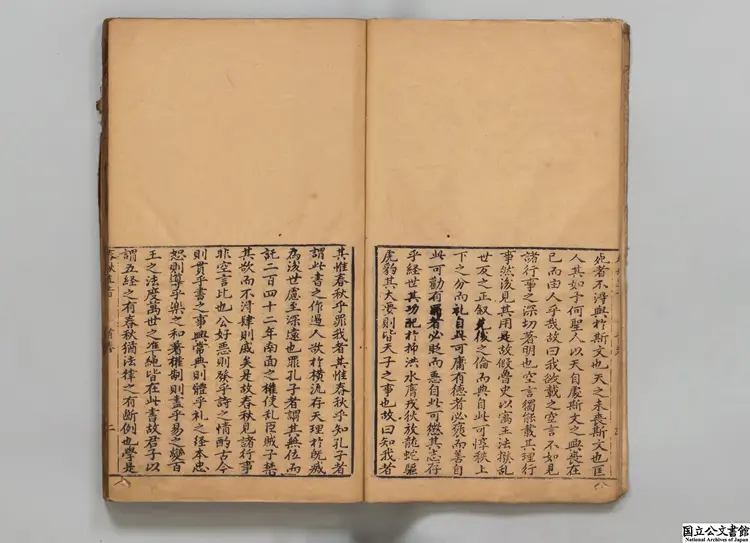 死者不得與於斯文也天之未喪斯文也匡
人其如予何聖人以天自處斯文之興喪在
己而由人乎哉故曰我欲載之空言不如見
諸行事之深切著明也空言獨能載其理行
事然後見其用是故假魯史以寓王法撥乱
世反之正叙先後之倫而典自此可惇秩上
下之分而礼自此可庸有德者必褒而善自
此可勸有罪者必貶而惡自此可懲其志存
乎經世其功配於抑洪水膺戎狄放龍蛇驅
虎豹其大要則皆天子之事也故曰知我者
其惟春秋乎罪我者其惟春秋乎知孔子者
謂此書之作遏人欲於横流存天理於既滅
為後世慮至深遠也罪孔子者謂其無位而
託二百四十二年南面之權使乱臣賊子禁
其欲而不得肆則戚矣是故春秋見諸行事
非空言比也公好惡則發乎詩之情酌古今
則貫乎書之事興常典則體乎礼之経本忠
恕則導乎樂之和著權制則盡乎易之變百
王之法度萬世之準繩皆在此書故君子以
謂五経之有春秋猶法律之有断例也學是
国立公文書館
National Archives of Japan